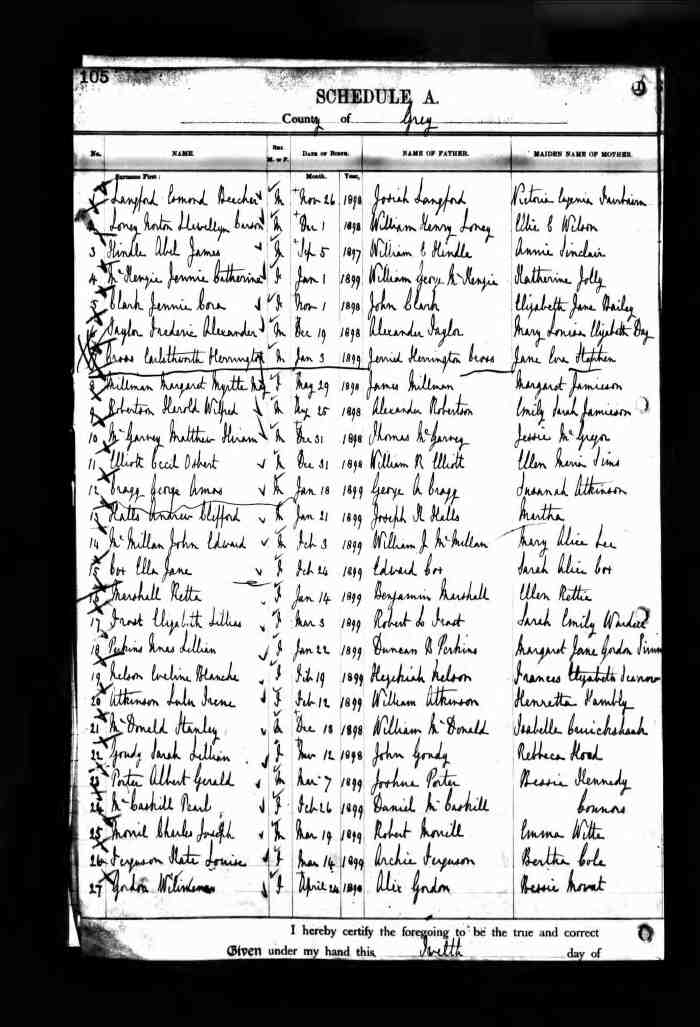 105
SCHEDULE A.
County of Grey
No. NAME. Sex M. or F. DATE OF BIRTH. NAME OF FATHER. MAIDEN NAME OF MOTHER.
Surname First: Month. Year,
Langford Esmond Beecher M Nov 26 1898 Josiah Langford Victoria Eugenia Fairbairn
Loney Norton Llewellyn Carson M Dec 1 1898 William Henry Loney Elie E Wilson
3 Hindle Abel James M Sep 5 1897 William E Hindle Annie Sinclair
4 McKenzie Jennie Catherine F Jan 1 1899 William George McKenzie Katherine Jolly
5 Clark Jennie Cora F Nov 1 1898 John Clark Elizabeth Jane Bailey
Taylor Frederic Alexander M Dec 19 1898 Alexander Taylor Mary Louisa Elizabeth Day
Cross Herrington M Jan 3 1899 Jerrid Herrington Cross Jane Eva Stephen
8 Millman Margaret Myrtle May F May 29 1898 James Millman Margaret Jamieson
9 Robertson Harold Wilfred M Aug 25 1898 Alexander Robertson Emily Sarah Jamieson
10 McGarvey Matthew Hiram M Dec 31 1898 Thomas McGarvey Jessie McGregor
11 Elliott Cecil Osbert M Dec 31 1898 William R Elliott Ellen Maria Sims
12 Cragg George Amos M Jan 18 1899 George A Cragg Susannah Atkinson
13 Halls Andrew Clifford M Jan 21 1899 Joseph H Halls Martha
14 McMillan John Edward M Feb 3 1899 William J. McMillan Mary Alice Lee
15 Cox Ella Jane F Feb 24 1899 Edward Cox Sarah Alice Cox
16 Marshall Retta F Jan 14 1899 Benjamin Marshall Ellen Rettie
17 Frost Elizabeth Lillias F Mar 3 1899 Robert L Frost Sarah Emily
18 Perkins Lillian F Jan 22 1899 Duncan B Perkins Margaret Jane Gordon
19 Nelson Eveline Blanche F Feb 19 1899 Hezekiah Nelson Frances Elizabeth
20 Atkinson Lulu Irene F Feb 12 1899 William Atkinson Henretta Hambly
21 McDonald Stanley M Dec 18 1898 William McDonald Isabella Cruickshank
22 Goudy Sarah Lillian F Nov 12 1898 John Goudy Rebbeca Hood
23 Porter Albert Gerald M Mar 7 1899 Joshua Porter Bessie Kennedy
24 McCaskill Pearl F Feb 26 1899 Daniel McCaskill Connors
25 Morril Charles Joseph M Mar 19 1899 Robert Morrill Emma Witte
26 Ferguson Kate Louise F Mar 14 1899 Archie Ferguson Bertha Cole
27 Gordon F April 24 1898 Alex Gordon Bessie Mowat
I hereby certify the foregoing to be the true and correct
Given under my hand this, Twelth day of